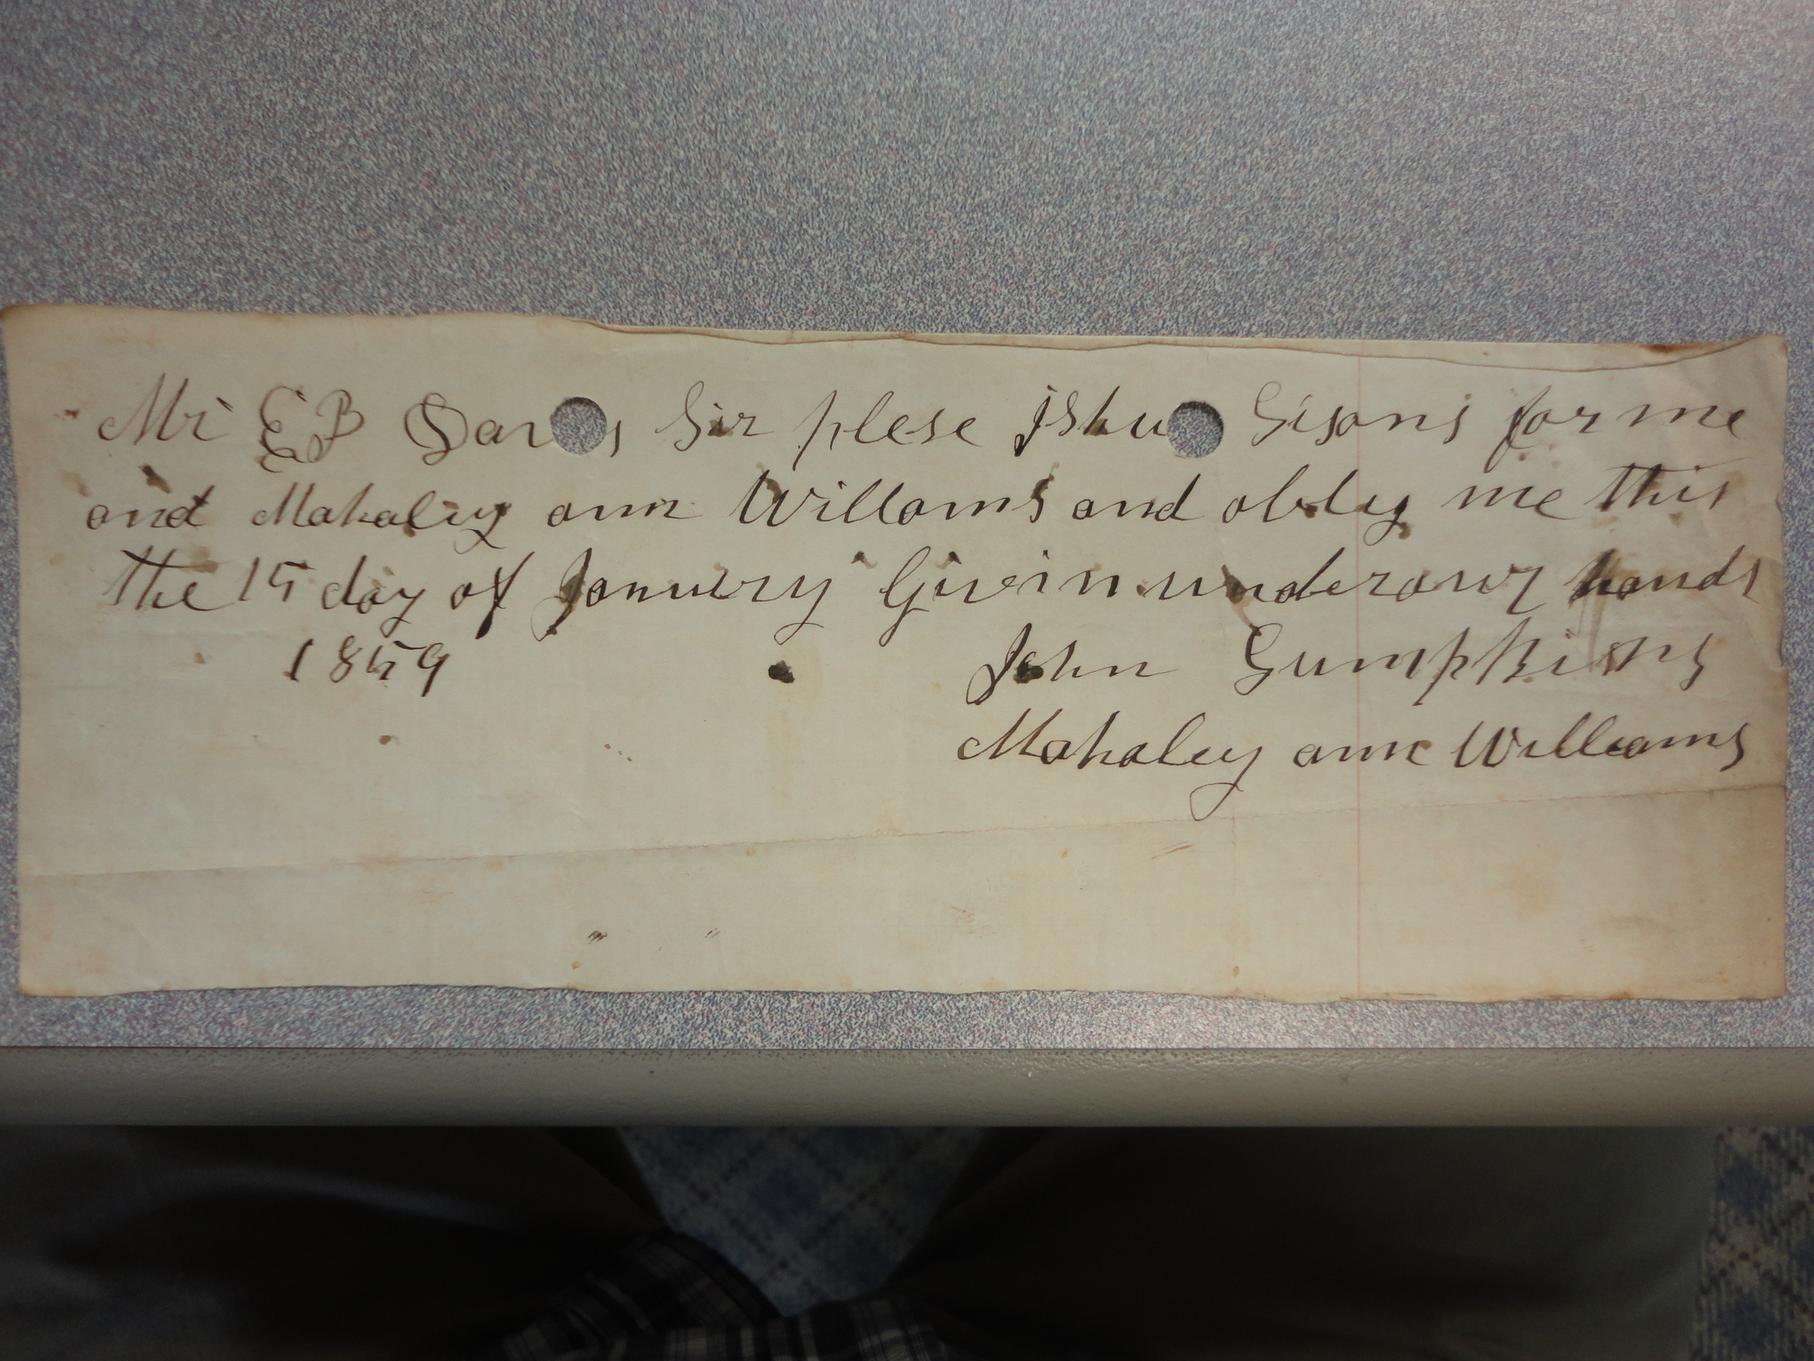 Mr E B Dav s Sir plese Ishu Lisons for me
and Mahaley ann Willams and obleg me this
the 15 day of Janurry Givin under owr hands
1859 John Lumpkins
Mahaley ann Williams